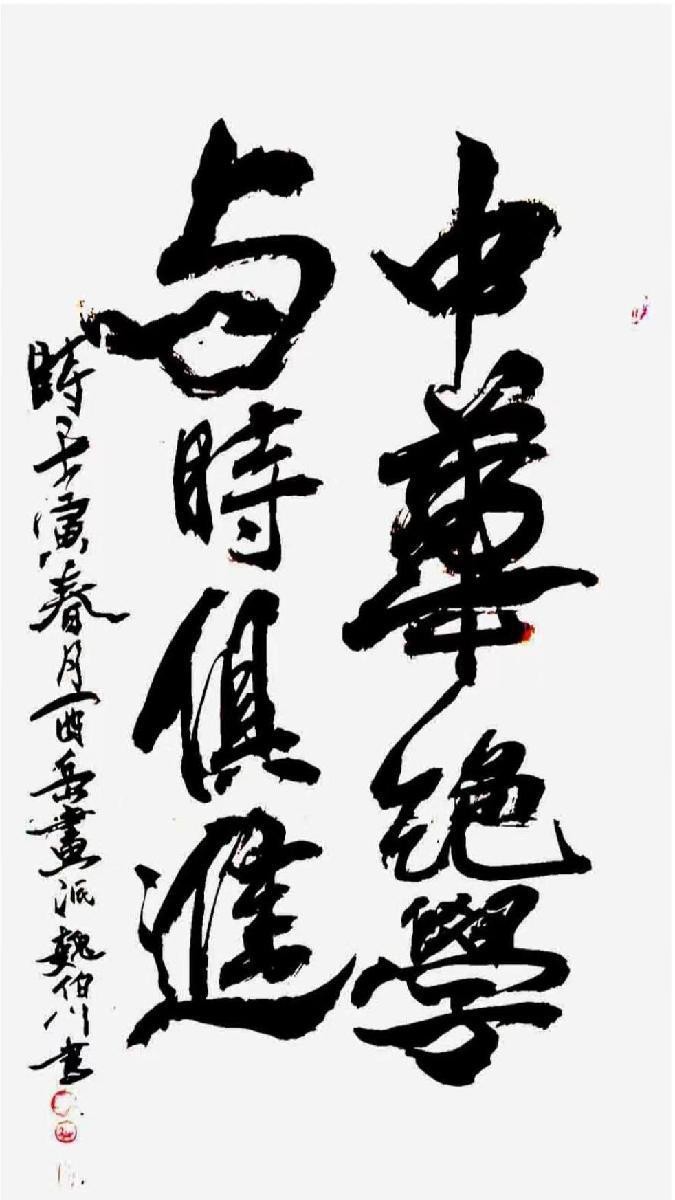 中華绝學
与時俱進
時壬寅春月西岳畫派魏伯川書